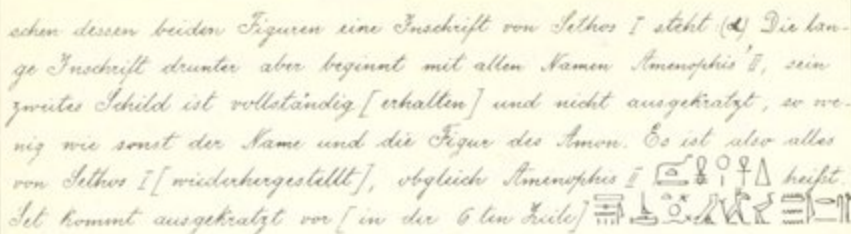 schen dessen beiden Figuren eine Inschrift von Sethos I steht (d) Die lan-
ge Inschrift drunter aber beginnt mit allen Namen Amenophis' II, sein
zweites Schild ist vollständig [erhalten] und nicht ausgekratzt, so we-
nig wie sonst der Name und die Figur des Amon. Es ist also alles
von Sethos I [wiederhergestellt], obgleich Amenophis II heifst.
Set kommt ausgekratzt vor [in der 6 ten Zeile]